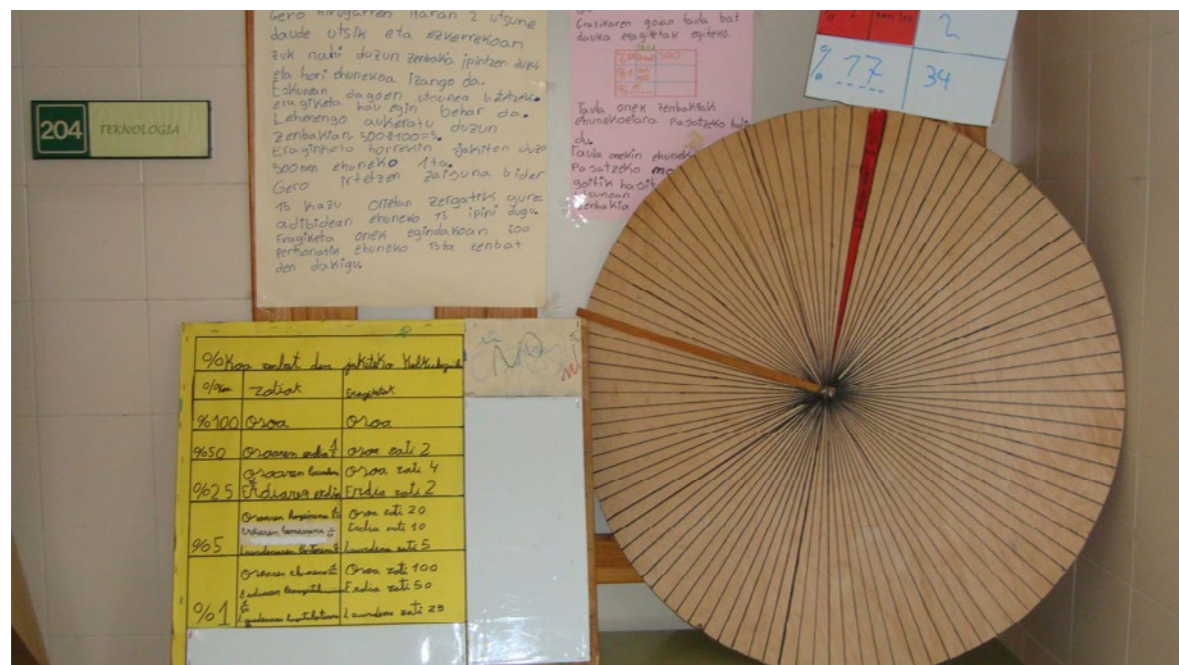 Gero hirugarren ilaran 2 utsune
daude utsik eta ezkerrekoan
zuk nahi duzun zenbakia ipintzen duzu
eta hori ehunekoa izango da.
Eskunean dagoen utsunea betetzeko
eragiketa hau egin behar da.
Lehenengo aukeratu duzun
zenbakian 500:100=5.
Eraginketa horrekin jakiten duzu
500nen ehuneko 1ta.
Gero irtetzen zaisuna bider
15 kazu orretan zergatik gure
adibidean ehuneko 15 ipini dugu
Eragiketa onek egindakoan 500
pertsonatik ehuneko 15ta zenbat
den dakigu.
Grafikaren goan taula bat
dauka eragiketak egiteko.
500
Taula onek zenbakiak
ehunekoetara pasatzeko balio
du.
Taula onekin ehuneko
Pasatzeko
goitik hasita
utsunean
zenbakia
2
% 17
34
204 TEKNOLOGIA
%Koa zenbat den jakiteko Kalkulagailu
%koa zatiak Eragiketak
%100 Osoa Osoa
%50 Osoaren erdia Osoa zati 2
Osoaren laurdena Osoa zati 4
%25 Erdiaren erdia Erdia zati 2
Osoaren Osoa zati 20
Erdiaren hamarrena Erdia zati 10
%5 Laurdenaren bostena Laurdena zati 5
Osoaren ehunena Osoa zati 100
Erdiaren Erdia zati 50
%1 Laurdenaren Laurdena zati 25